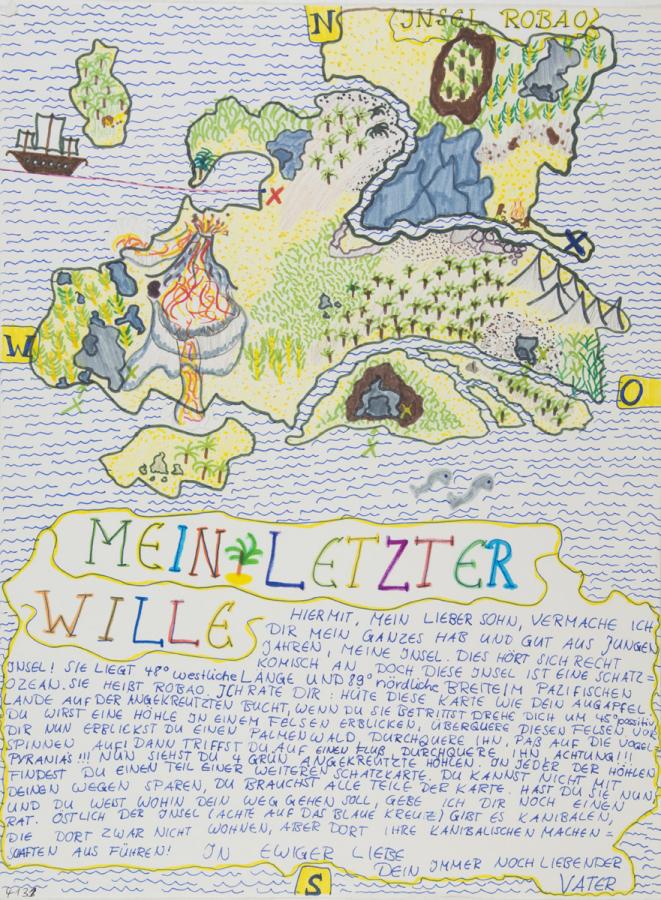 N
INSEL ROBAO
W
O
MEIN LETZTER
WILLE
HIERMIT, MEIN LIEBER SOHN, VERMACHE ICH
DIR MEIN GANZES HAB UND GUT AUS JUNGEN
JAHREN, MEINE INSEL. DIES HÖRT SICH RECHT
KOMISCH AN DOCH DIESE INSEL IST EINE SCHATZ=
INSEL! SIE LIEGT 48° westliche LÄNGE UND 89° nördliche BREITE IM PAZIFISCHEN
OZEAN. SIE HEIßT ROBAO. ICH RATE DIR: HÜTE DIESE KARTE WIE DEIN AUGAPFEL
LANDE AUF DER ANGEKREUTZTEN BUCHT, WENN DU SIE BETRITTST DREHE DICH UM 45° positiv
DU WIRST EINE HÖHLE IN EINEM FELSEN ERBLICKEN ÜBERQUERE DIESEN FELSEN VOR
DIR NUN ERBLICKST DU EINEN PALMENWALD DURCHQUERE IHN, PAß AUF DIE VOGEL=
SPINNEN AUF! DANN TRIFFST DU AUF EINEN FLUß, DURCHQUERE IHN ACHTUNG!!!
PYRANIAS!!! NUN SIEHST DU 4 GRÜN ANGEKREUTZTE HÖHLEN. IN JEDER DER HÖHLEN
FINDEST DU EINEN TEIL EINER WEITEREN SCHATZKARTE. DU KANNST NICHT MIT
DEINEN WEGEN SPAREN, DU BRAUCHST ALLE TEILE DER KARTE. HAST DU SIE NUN,
UND DU WEIST WOHIN DEIN WEG GEHEN SOLL, GEBE ICH DIR NOCH EINEN
RAT. ÖSTLICH DER INSEL (ACHTE AUF DAS BLAUE KREUTZ) GIBT ES KANIBALEN,
DIE DORT ZWAR NICHT WOHNEN, ABER DORT IHRE KANIBALISCHEN MACHEN=
SCHAFTEN AUS FÜHREN! IN EWIGER LIEBE
DEIN IMMER NOCH LIEBENDER
VATER
S